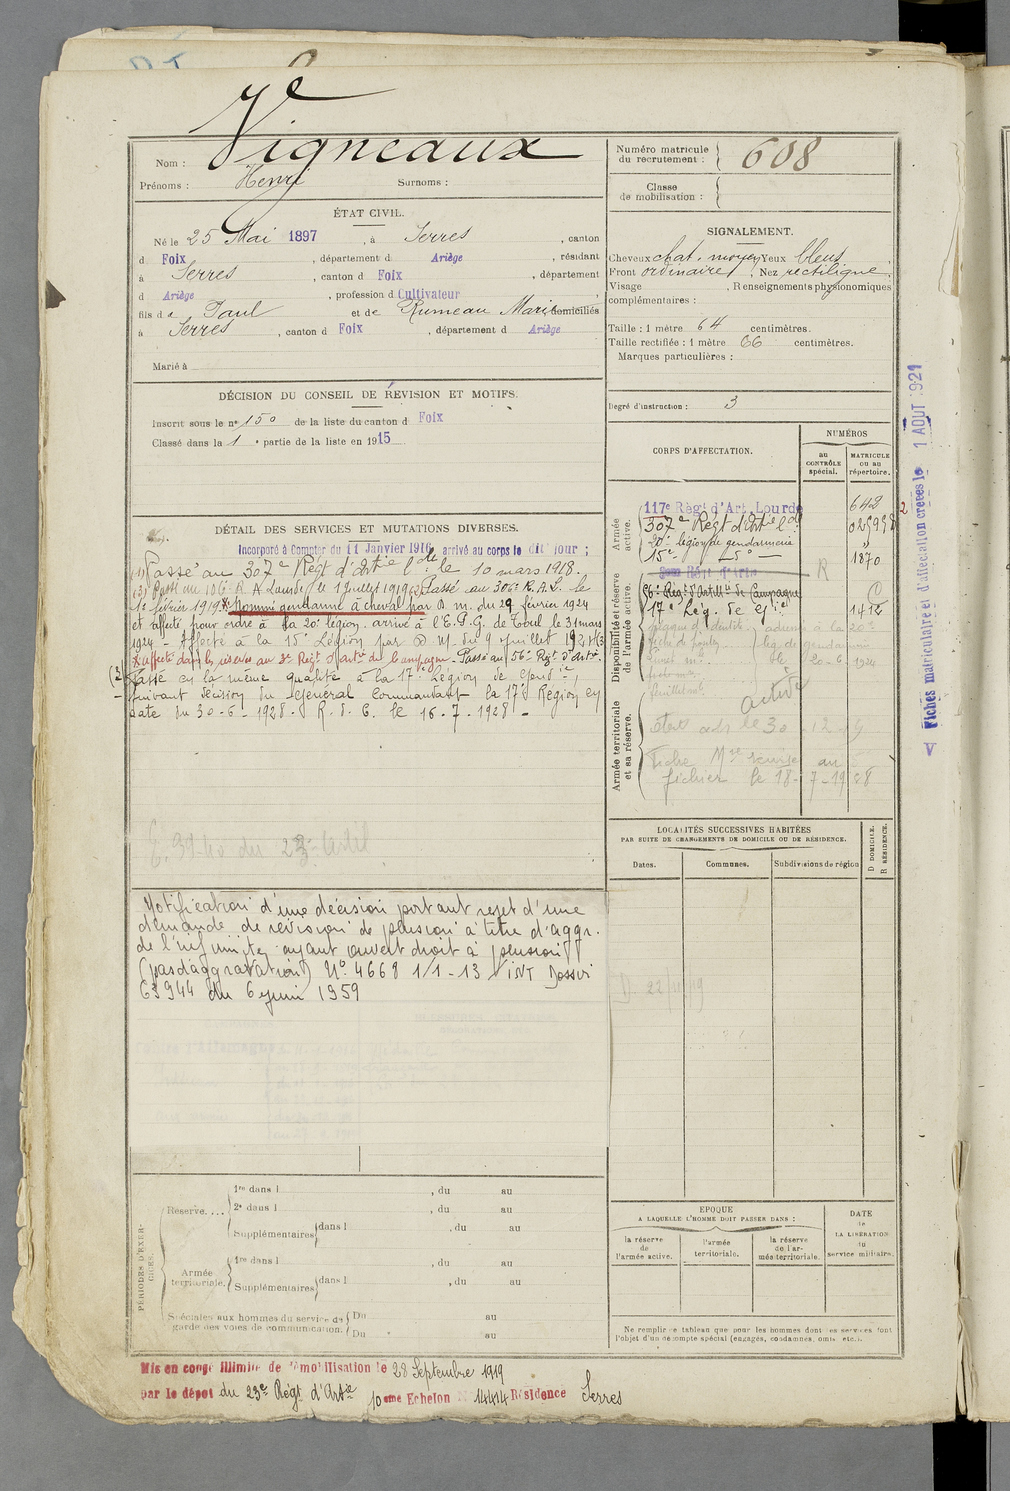 Ve
Vigneaux
Nom :
Prénoms : Henri Surnoms :
Numéro matricule du recrutement : 608
Classe de mobilisation :
ÉTAT CIVIL.
Né le 25 Mai 1897, à Serres, canton
d Foix, département d Ariège, résidant
à Serres, canton d Foix, département
d Ariège, profession d Cultivateur
fils de Paul et de Rumeau Marie domiciliés
à Serres, canton d Foix, département d Ariège
Marié à
SIGNALEMENT.
Cheveux chat. moyen Yeux bleus
Front ordinaire Nez rectiligne
Visage Renseignements physionomiques
complémentaires :
Taille : 1 mètre 64 centimètres.
Taille rectifiée : 1 mètre 66 centimètres.
Marques particulières :
Degré d'instruction : 3
DÉCISION DU CONSEIL DE REVISION ET MOTIFS.
Inscrit sous le n° 150 de la liste du canton d Foix
Classé dans la 1e partie de la liste en 1915
CORPS D'AFFECTATION.
NUMÉROS
au CONTRÔLE spécial.
MATRICULE ou au répertoire.
Armée active.
117e Régt d'Art. Lourde 642
307e Régt d'Artie Lde
20e légion de gendarmerie "
15e — d° — 1870
Disponibilité et réserve de l'armée active.
R
56e Régt d'Artillie de Campagne
17e Lég. de Gie 1412
plaque d'identité
20-6-1924
Armée territoriale et sa réserve.
active
le 30 12
Fiche Mle remise au
fichier le 18-7-1928
Fiches matriculaire et d'affectation créées le 1 AOUT 1921
DÉTAIL DES SERVICES ET MUTATIONS DIVERSES.
Incorporé à Compter du 11 Janvier 1916, arrivé au corps le dit jour ;
(1) Passé au 307e Régt d'Artie Lde le 10 mars 1918.
(3) Passé au 106e R. A. Lourde le 1 Juillet 1919 (2) Passé au 306e R.A.L. le
1er février 1919. * Nommé gendarme à cheval par D. M. du 29 février 1924
et affecté pour ordre à la 20e légion. arrivé à l'E.P.G. de Toul le 31 mars
1924 - Affecté à la 15e Légion par D. M. du 9 Juillet 1924
* Affecté dans la réserve au 3e Régt d'artie de Campagne. Passé au 56e Régt d'Artie.
Passé en la même qualité à la 17e Légion de Gendie,
suivant décision du Général Commandant la 17e Région en
date du 30-6-1928. R. d. C. le 16-7-1928 -
Notification d'une décision portant rejet d'une
demande de révision de pension à titre d'aggr.
de l'infirmité ayant ouvert droit à pension
(pas d'aggravation) N° 4668 1/1-13 INT Dossier
63944 du 6 juin 1959
LOCALITÉS SUCCESSIVES HABITÉES
PAR SUITE DE CHANGEMENTS DE DOMICILE OU DE RÉSIDENCE.
Dates. Communes. Subdivisions de région
D DOMICILE. R RÉSIDENCE.
PÉRIODES D'EXERCICES.
Réserve....
1re dans l , du au
2e dans l , du au
Supplémentaires dans l , du au
Armée territoriale.
1re dans l , du au
Supplémentaires dans l , du au
Spéciales aux hommes du service de Du au
garde des voies de communication. Du au
EPOQUE
A LAQUELLE L'HOMME DOIT PASSER DANS :
la réserve de l'armée active.
l'armée territoriale.
la réserve de l'armée territoriale.
DATE de LA LIBÉRATION du service militaire.
Ne remplir ce tableau que pour les hommes dont les services font
l'objet d'un décompte spécial (engagés, condamnés, omis, etc.).
Mis en congé illimité de démobilisation le 28 Septembre 1919
par le dépôt du 23e Régt d'Artie 10eme Echelon N° 14414 Résidence Serres